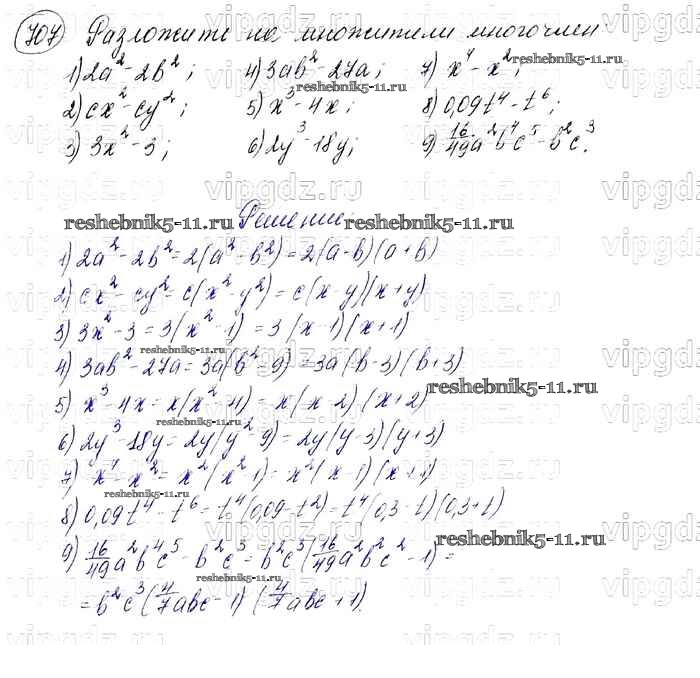 707 Разложите на множители многочлен
1) 2a² - 2b²; 4) 3ab² - 27a; 7) x⁴ - x²;
2) cx² - cy²; 5) x³ - 4x; 8) 0,09t⁴ - t⁶;
3) 3x² - 3; 6) 2y³ - 18y; 9) 16/49 a²b⁴c⁵ - b²c³.
Решение
1) 2a² - 2b² = 2(a² - b²) = 2(a - b)(a + b)
2) cx² - cy² = c(x² - y²) = c(x - y)(x + y)
3) 3x² - 3 = 3(x² - 1) = 3(x - 1)(x + 1)
4) 3ab² - 27a = 3a(b² - 9) = 3a(b - 3)(b + 3)
5) x³ - 4x = x(x² - 4) = x(x - 2)(x + 2)
6) 2y³ - 18y = 2y(y² - 9) = 2y(y - 3)(y + 3)
7) x⁴ - x² = x²(x² - 1) = x²(x - 1)(x + 1)
8) 0,09t⁴ - t⁶ = t⁴(0,09 - t²) = t⁴(0,3 - t)(0,3 + t)
9) 16/49 a²b⁴c⁵ - b²c³ = b²c³(16/49 a²b²c² - 1) =
= b²c³(4/7 abc - 1)(4/7 abc + 1)
vipgdz.ru
reshebnik5-11.ru